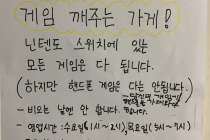 게임 깨주는 가게!
닌텐도 스위치에 있는
모든 게임은 다 됩니다.
(하지만 핸드폰 게임은 다는 안됩니다.)
- 비오는 날엔 안 합니다.
- 영업시간: 수요일(1시~2시), 목요일(5시~7시)